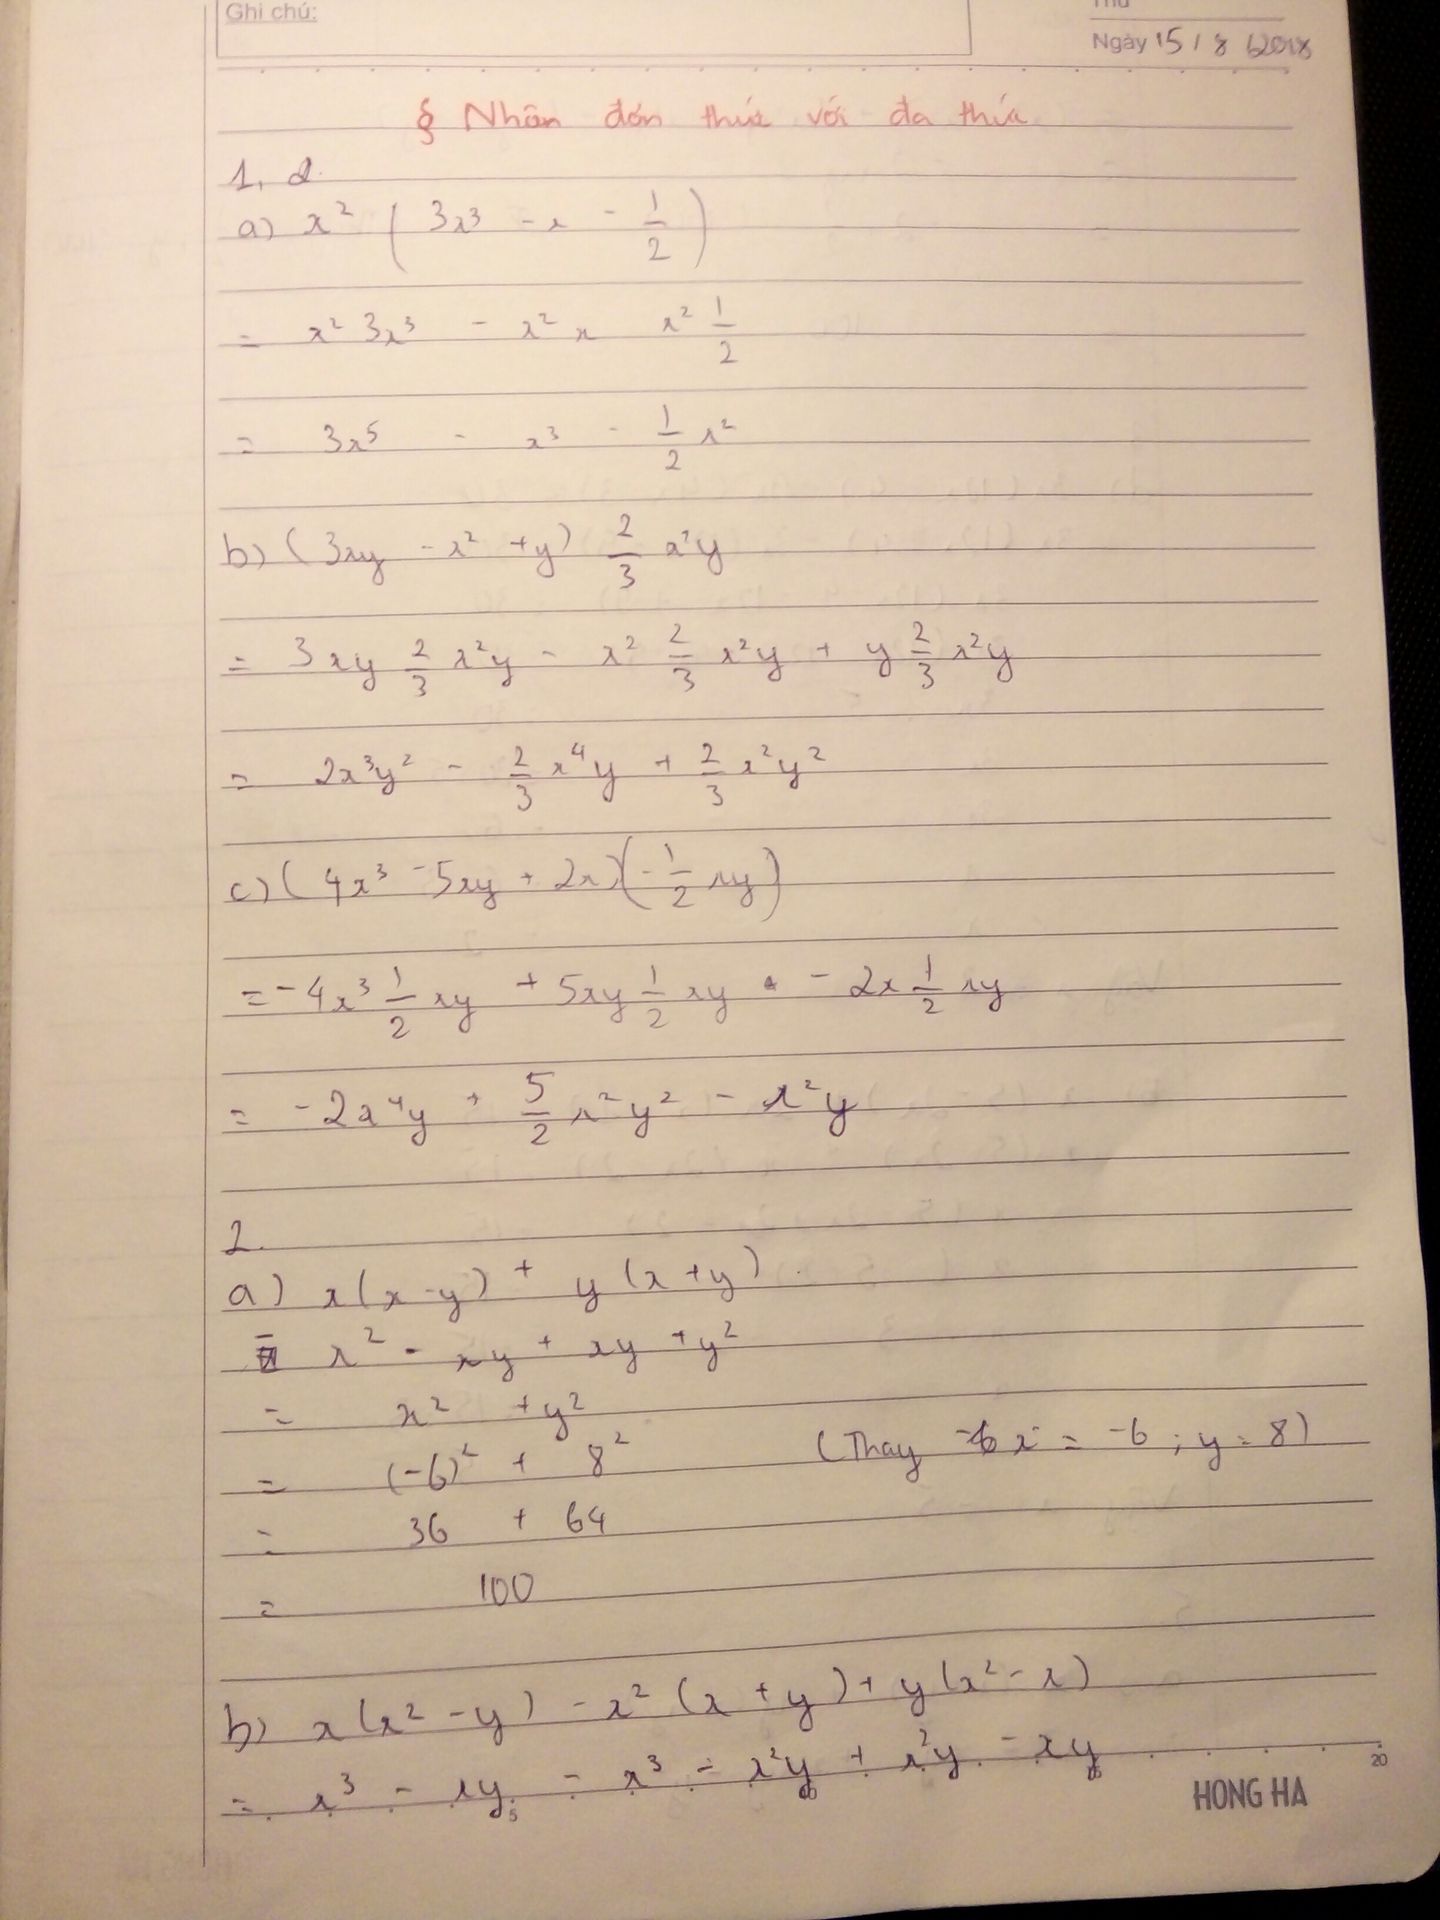 Ghi chú:
Thứ
Ngày 15 / 8 / 2018
§ Nhân đơn thức với đa thức
1,
a) x² (3x³ - x - 1/2)
= x² 3x³ - x² x x² 1/2
= 3x⁵ - x³ - 1/2 x²
b) (3xy - x² + y) 2/3 x²y
= 3xy 2/3 x²y - x² 2/3 x²y + y 2/3 x²y
= 2x³y² - 2/3 x⁴y + 2/3 x²y²
c) (4x³ - 5xy + 2x)(-1/2 xy)
= -4x³ 1/2 xy + 5xy 1/2 xy - 2x 1/2 xy
= -2x⁴y + 5/2 x²y² - x²y
2.
a) x(x-y) + y(x+y)
= x² - xy + xy + y²
= x² + y²
= (-6)² + 8² (Thay x = -6 ; y = 8)
= 36 + 64
= 100
b) x(x² - y) - x² (x + y) + y(x² - x)
= x³ - xy - x³ - x²y + x²y - xy
20
HONG HA